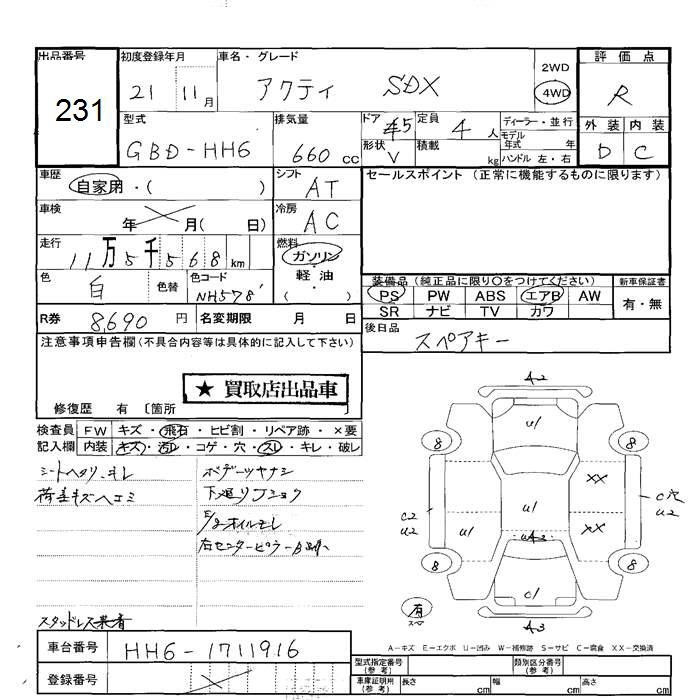 出品番号 初度登録年月 車名・グレード 評価点
231 21 11月 アクティ SDX 2WD 4WD R
型式 排気量 ドア 定員 ディーラー・並行 外装 内装
GBD-HH6 660cc 5 4人 モデル年式 年 D C
形状 V 積載 kg ハンドル 左・右
車歴 シフト セールスポイント(正常に機能するものに限ります)
自家用・( ) AT
車検 冷房
年 月( 日) AC
走行 燃料
11万5千568km ガソリン
色 色替 色コード 軽油
白 NH578 ( )
装備品(純正品に限り○をつけてください) 新車保証書
PS PW ABS エアB AW 有・無
SR ナビ TV カワ
R券 8,690円 名変期限 月 日 後日品
スペアキー
注意事項申告欄(不具合内容等は具体的に記入して下さい)
★買取店出品車
修復歴 有〔箇所 〕
検査員 FW キズ・飛石・ヒビ割・リペア跡・×要
記入欄 内装 キズ・汚レ・コゲ・穴・スレ・キレ・破レ
シートヘタリ、キレ
荷台キズヘコミ
ボデーツヤナシ
E/gオイルモレ
右センターピラー
スタッドレス
A2
U1
8 8
XX
C穴
U2
C2
U2
U1 U1 XX
8 8
C1
有
スペア
A3
A-キズ E-エクボ U-凹み W-補修跡 S-サビ C-腐食 XX-交換済
車台番号 HH6-1711916
登録番号
型式指定番号(参考) 類別区分番号(参考)
車庫証明用(参考) 長さ cm 幅 cm 高さ cm